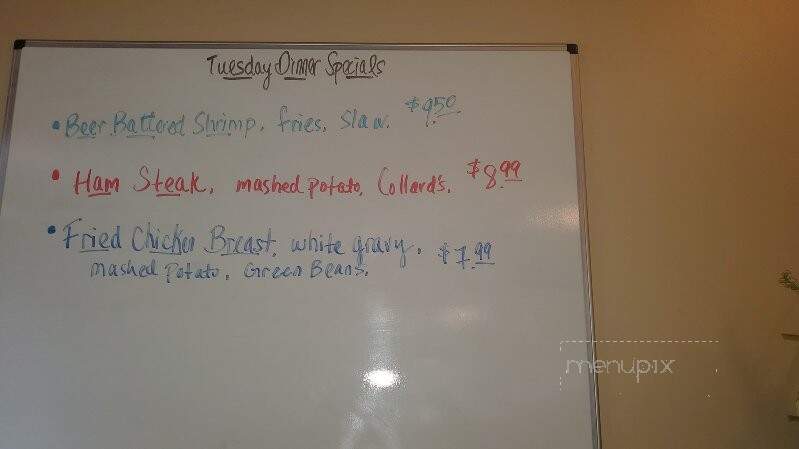 Tuesday Dinner Specials
• Beer Battered Shrimp, fries, Slaw. $9.50
• Ham Steak, mashed potato, Collards. $8.99
• Fried Chicken Breast, white gravy, $7.99
mashed potato, Green Beans.
menupix